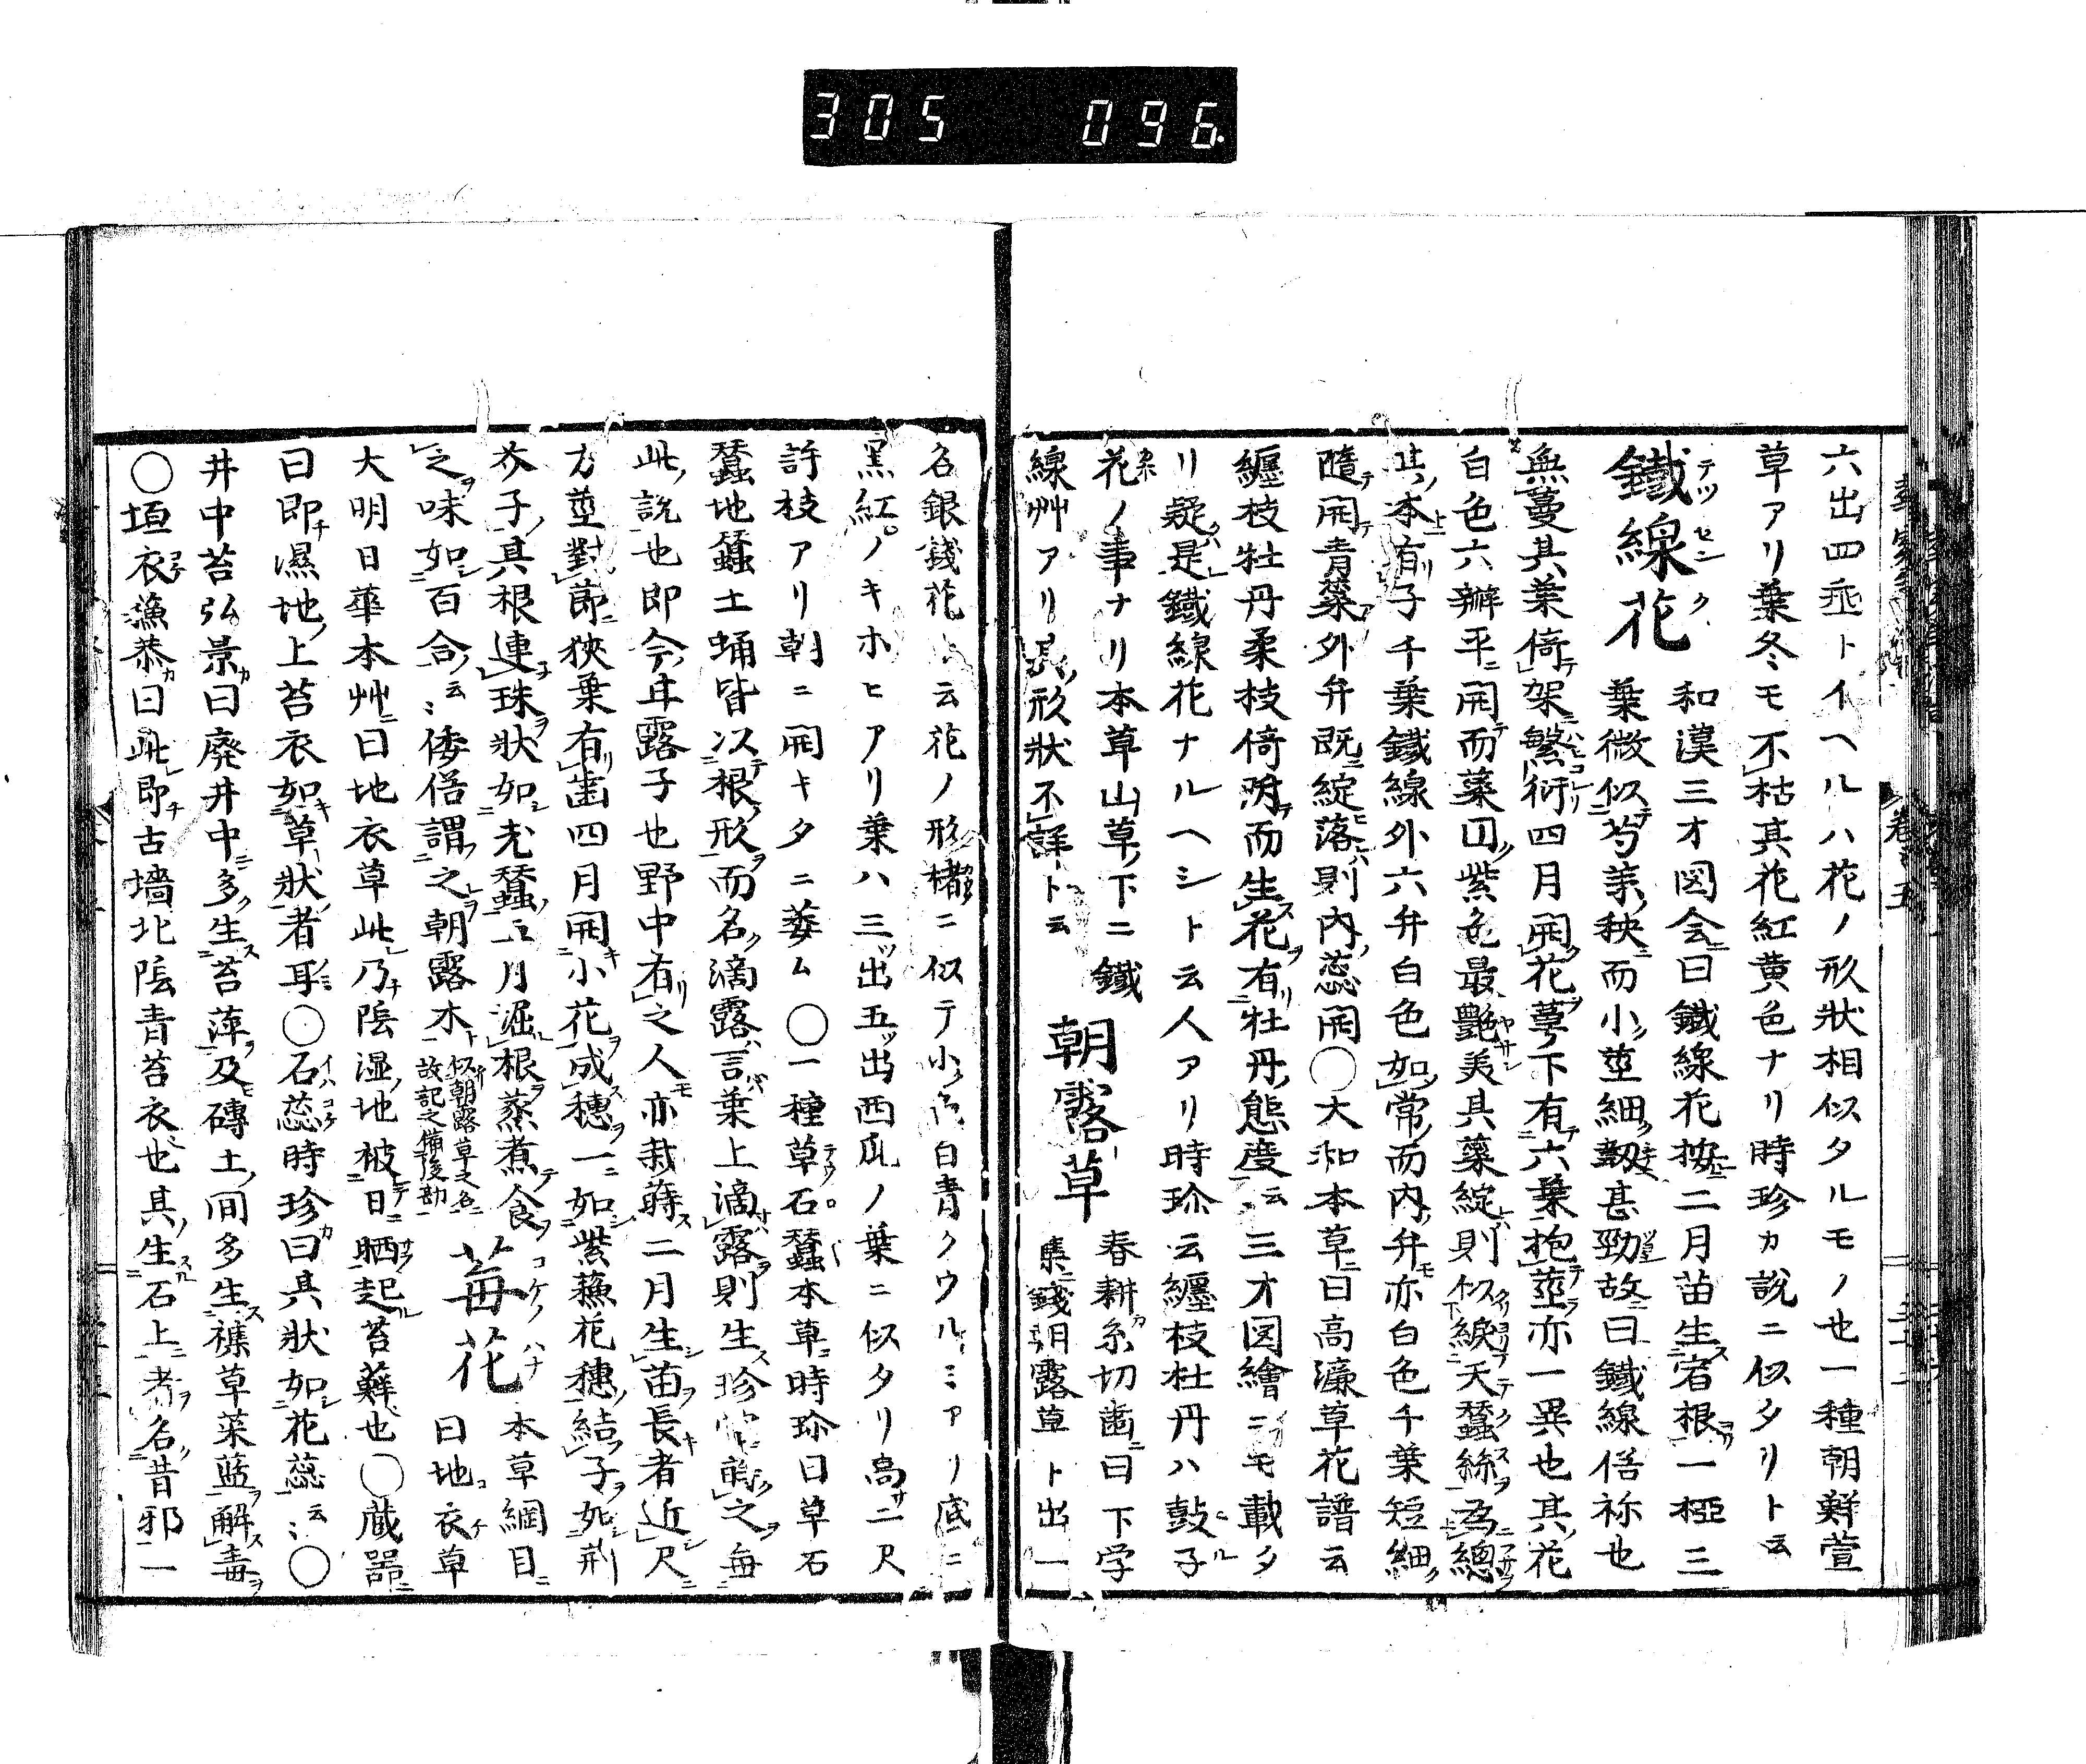 305 096.
六出四垂トイヘルハ花ノ形狀相似タルモノ也一種朝鮮萱
草アリ葉冬ミモ不枯其花紅黄色ナリ時珍カ説ニ似タリト云
鐵線花 和漢三才図会曰鐵線花按二月苗生宿根一椏三
葉微似芍薬秧而小莖細靭甚勁故曰鐵線俗称也
無蔓其葉倚架繁衍四月開花萼下有六葉抱莖亦一異也其花
白色六瓣平開而蘂四紫色最艷美具藥綻則似緩天蚕絲為總
其本有子千葉鐵線外六弁白色如常而内弁亦白色千葉短細
隨開青蘂外弁既綻落則内蕊開〇大和本草曰高濂草花譜云
纏枝牡丹柔枝倚附而生花有牡丹態度云三才図繪ニモ載タ
リ疑是鐵線花ナルヘシト云人アリ時珍云纏枝牡丹ハ鼓子
花ノ事ナリ本草山草下ニ鐵
線艸アリ形狀不詳ト云
朝露草 春耕糸切歯曰下学
集錢朝露草ト出一
名銀錢花云花ノ形楮ニ似テ小白青クウルミアリ底ニ
黒紅ノキホヒアリ葉ハ三出五出西瓜ノ葉ニ似タリ高サ二尺
許枝アリ朝ニ開キタニ萎ム〇一種草石蠶本草時珍曰草石
蠶地蠶土蛹皆以根形而名滴露言葉上滴露則生珍常蒔之毎
此説也即今甘露子也野中有之人亦栽蒔二月生苗長者近尺
方莖對節狭葉有歯四月開小花成穗一如紫蘓花穗結子如荊
芥子其根連珠狀如老蠶五月漚根蒸煮食
之味如百合云ミ倭俗謂之朝露木似朝露草之名故記之備後勘
苺花 本草綱目
曰地衣草
大明日華本艸曰地衣草此乃陰湿地被日晒起苔蘚也〇蔵噐
曰即濕地上苔衣如草狀者耳〇石蕊時珍曰其狀如花蕊云ミ〇
井中苔弘景曰廢井中多生苔萍及磚土間多生襍草菜藍解毒
〇垣衣漁恭曰此即古墻北陰青苔衣也其生石上者名昔邪一